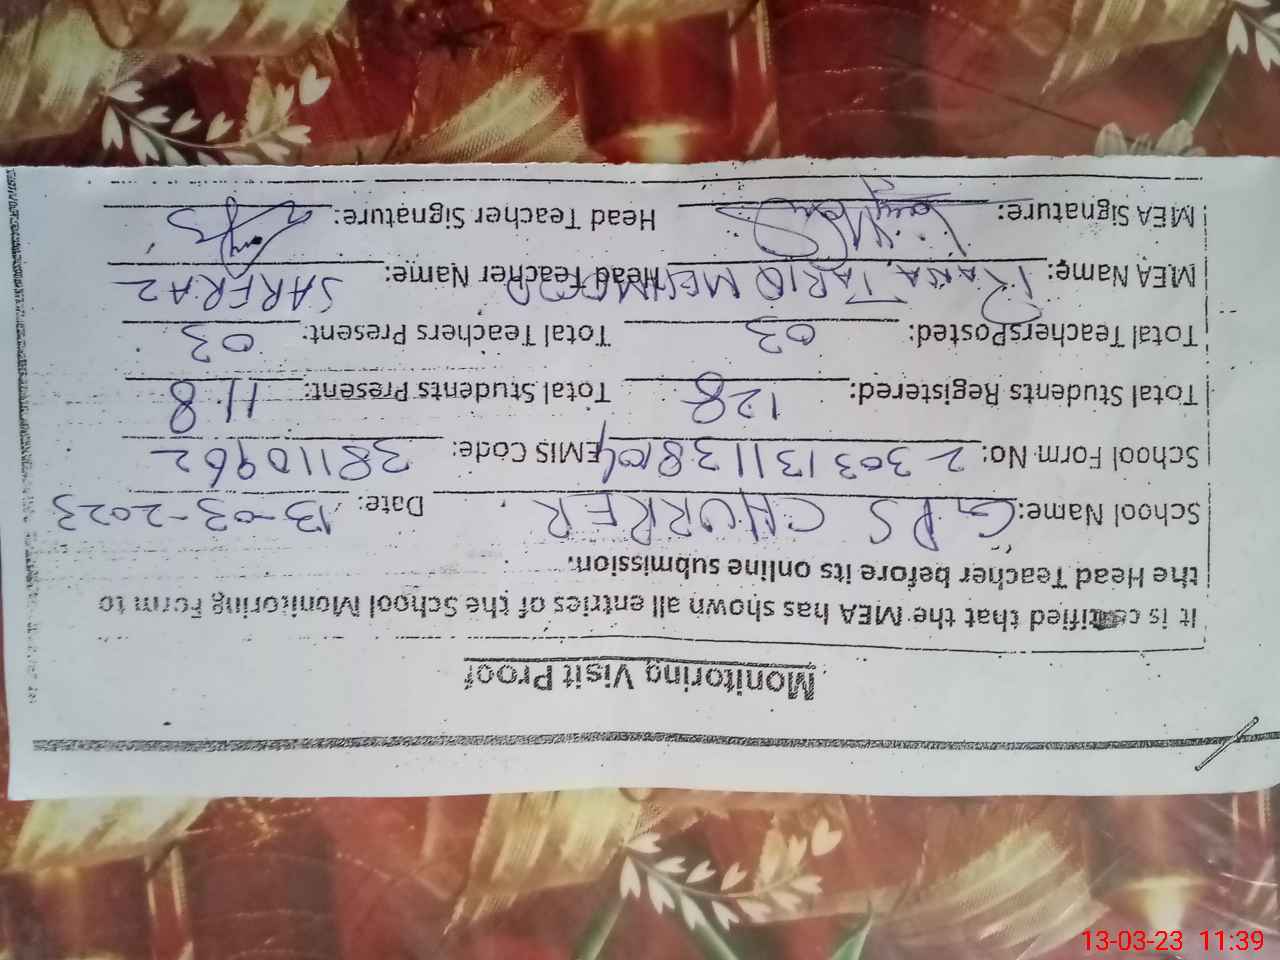 Monitoring Visit Proof
It is certified that the MEA has shown all entries of the School Monitoring Form to
the Head Teacher before its online submission.
School Name: GPS CHURRER Date: 13-03-2023
School Form No: EMIS Code: 38110962
Total Students Registered: 128 Total Students Present: 118
Total TeachersPosted: 03 Total Teachers Present: 03
MEA Name: RANA TARIQ MEHMOOD Head Teacher Name: SARFRAZ
MEA Signature: Head Teacher Signature:
13-03-23 11:39